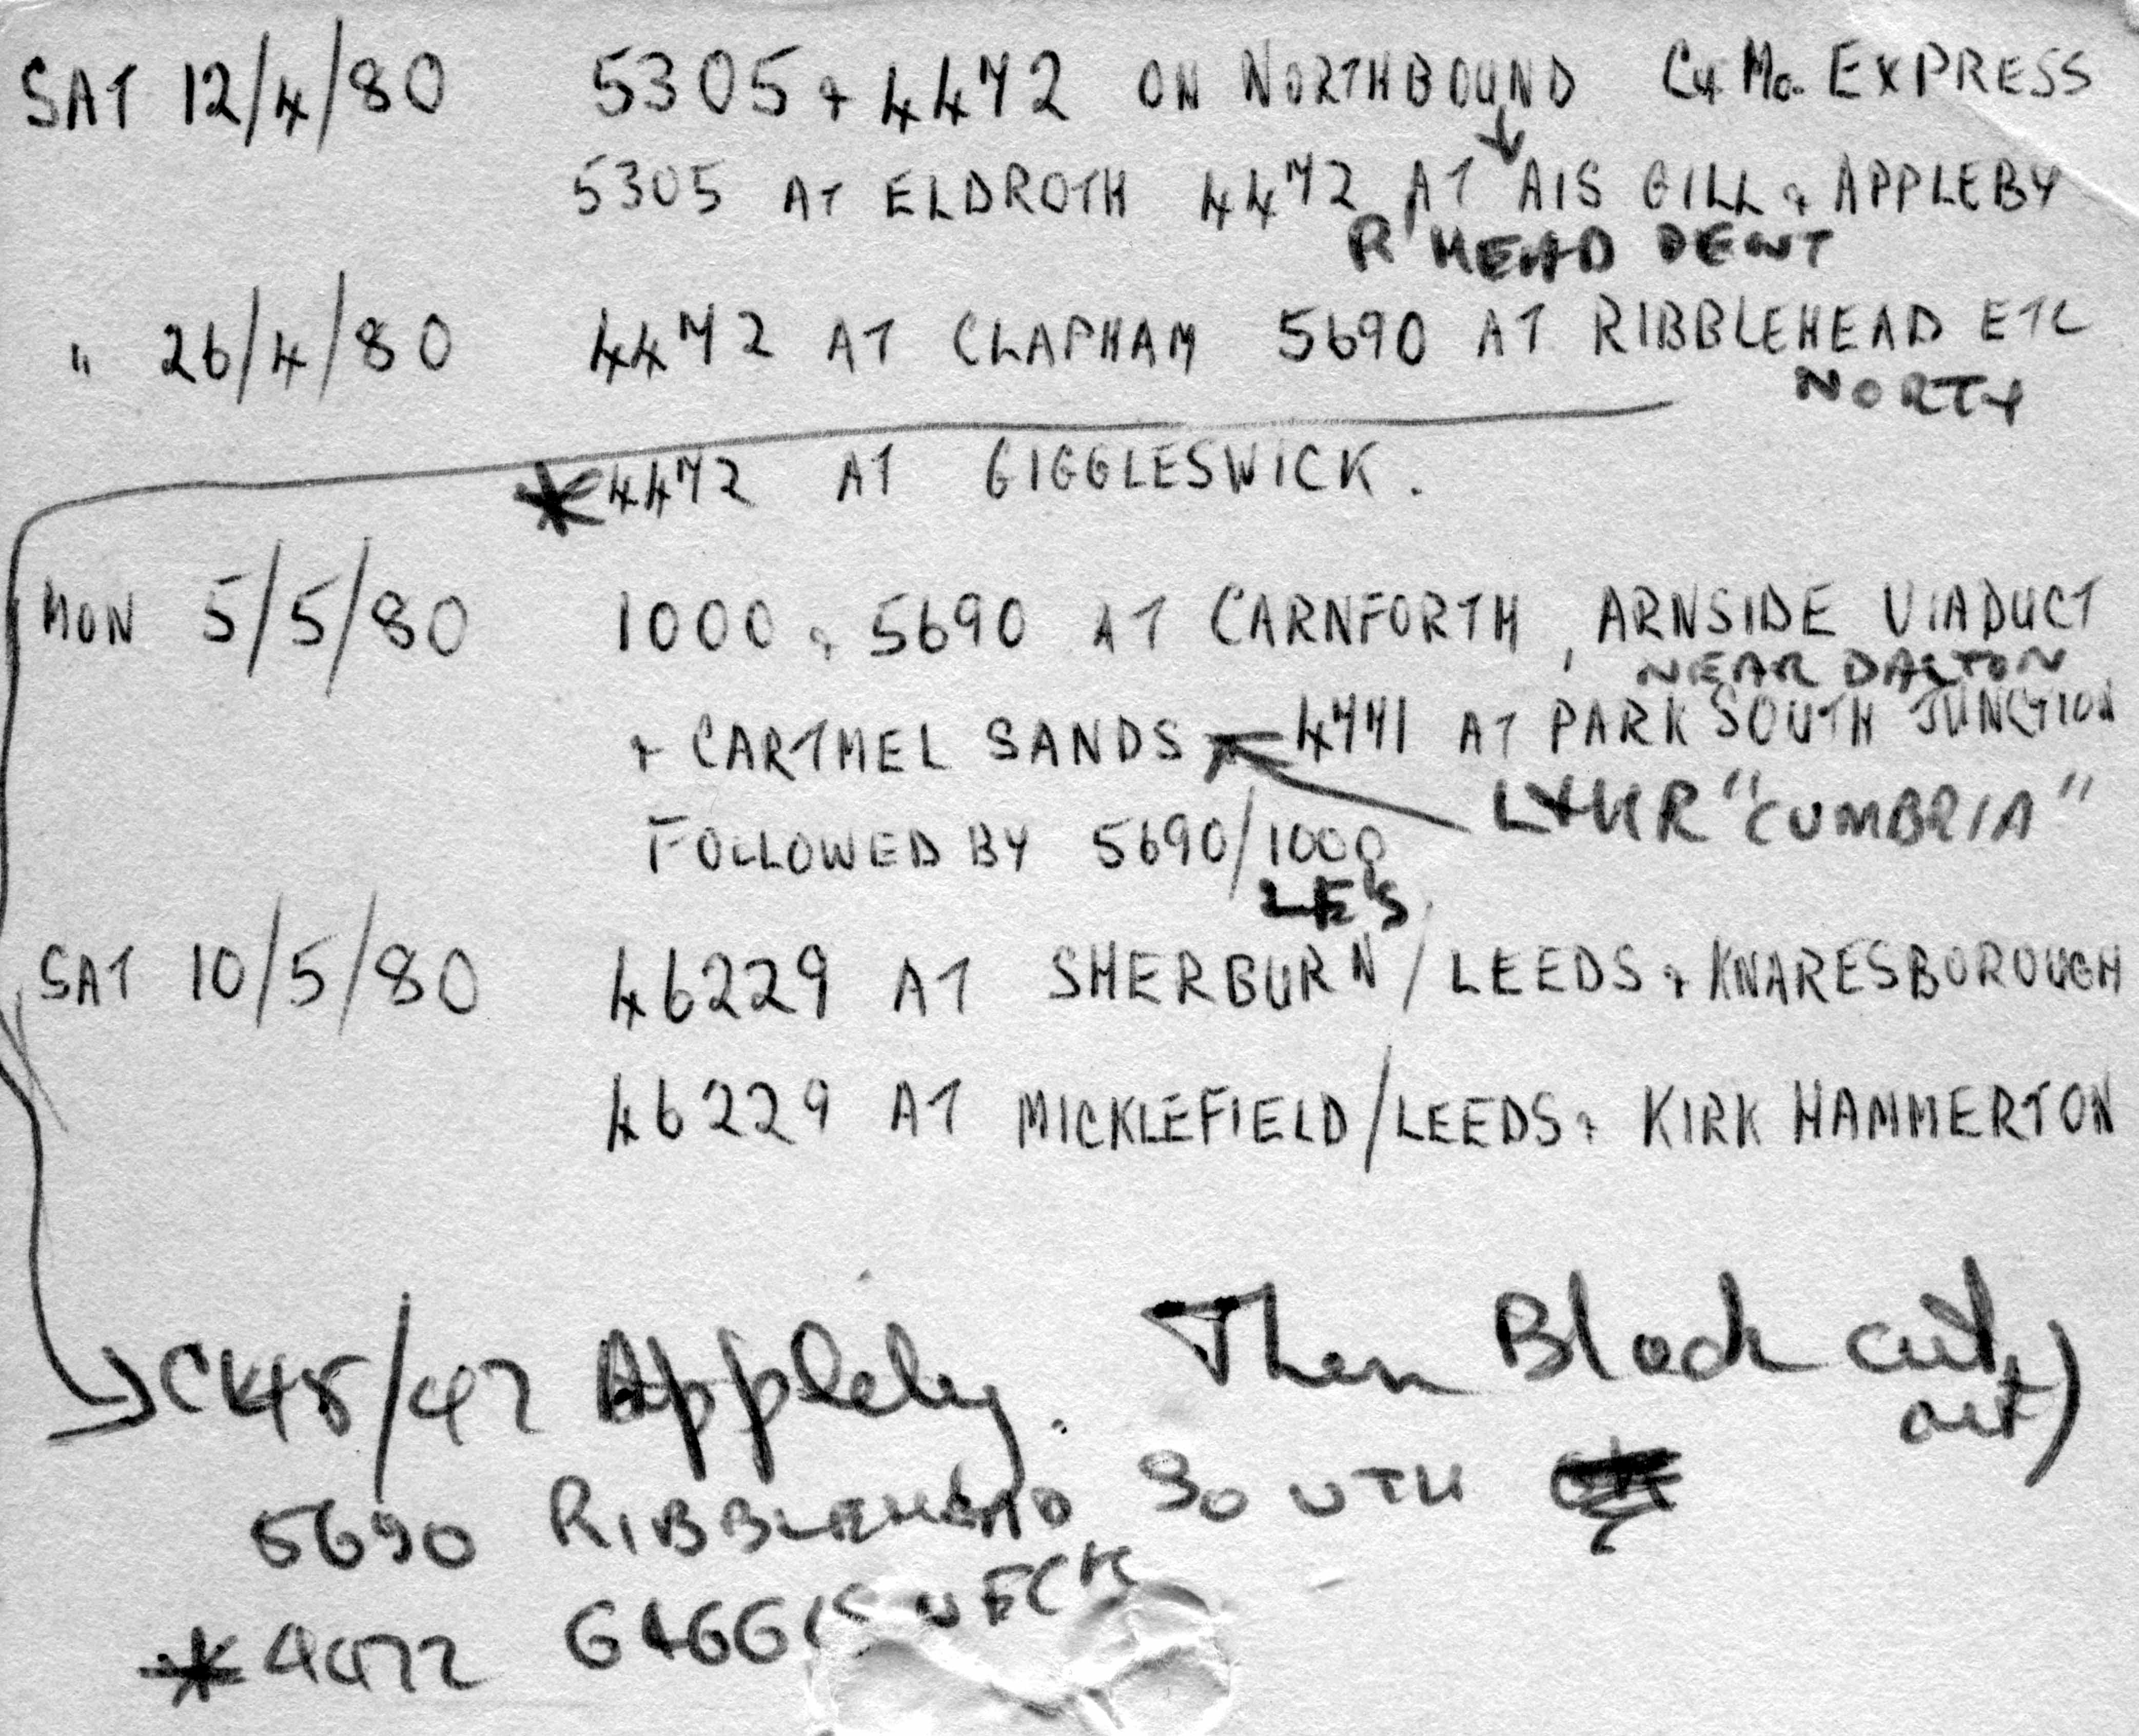 SAT 12/4/80 5305 & 4472 ON NORTHBOUND Cu Mo. EXPRESS
5305 AT ELDROTH 4472 AT AIS GILL & APPLEBY
R'HEAD DENT
" 26/4/80 4472 AT CLAPHAM 5690 AT RIBBLEHEAD ETC
NORTH
*4472 AT GIGGLESWICK.
MON 5/5/80 1000 & 5690 AT CARNFORTH, ARNSIDE VIADUCT
NEAR DALTON
& CARTMEL SANDS 4771 AT PARK SOUTH JUNCTION
L&HR "CUMBRIA"
FOLLOWED BY 5690/1000
LE'S
SAT 10/5/80 46229 AT SHERBURN/LEEDS & KNARESBOROUGH
46229 AT MICKLEFIELD/LEEDS & KIRK HAMMERTON
Appleby. Then Black
out)
5690 RIBBLEHEAD SOUTH
*4472